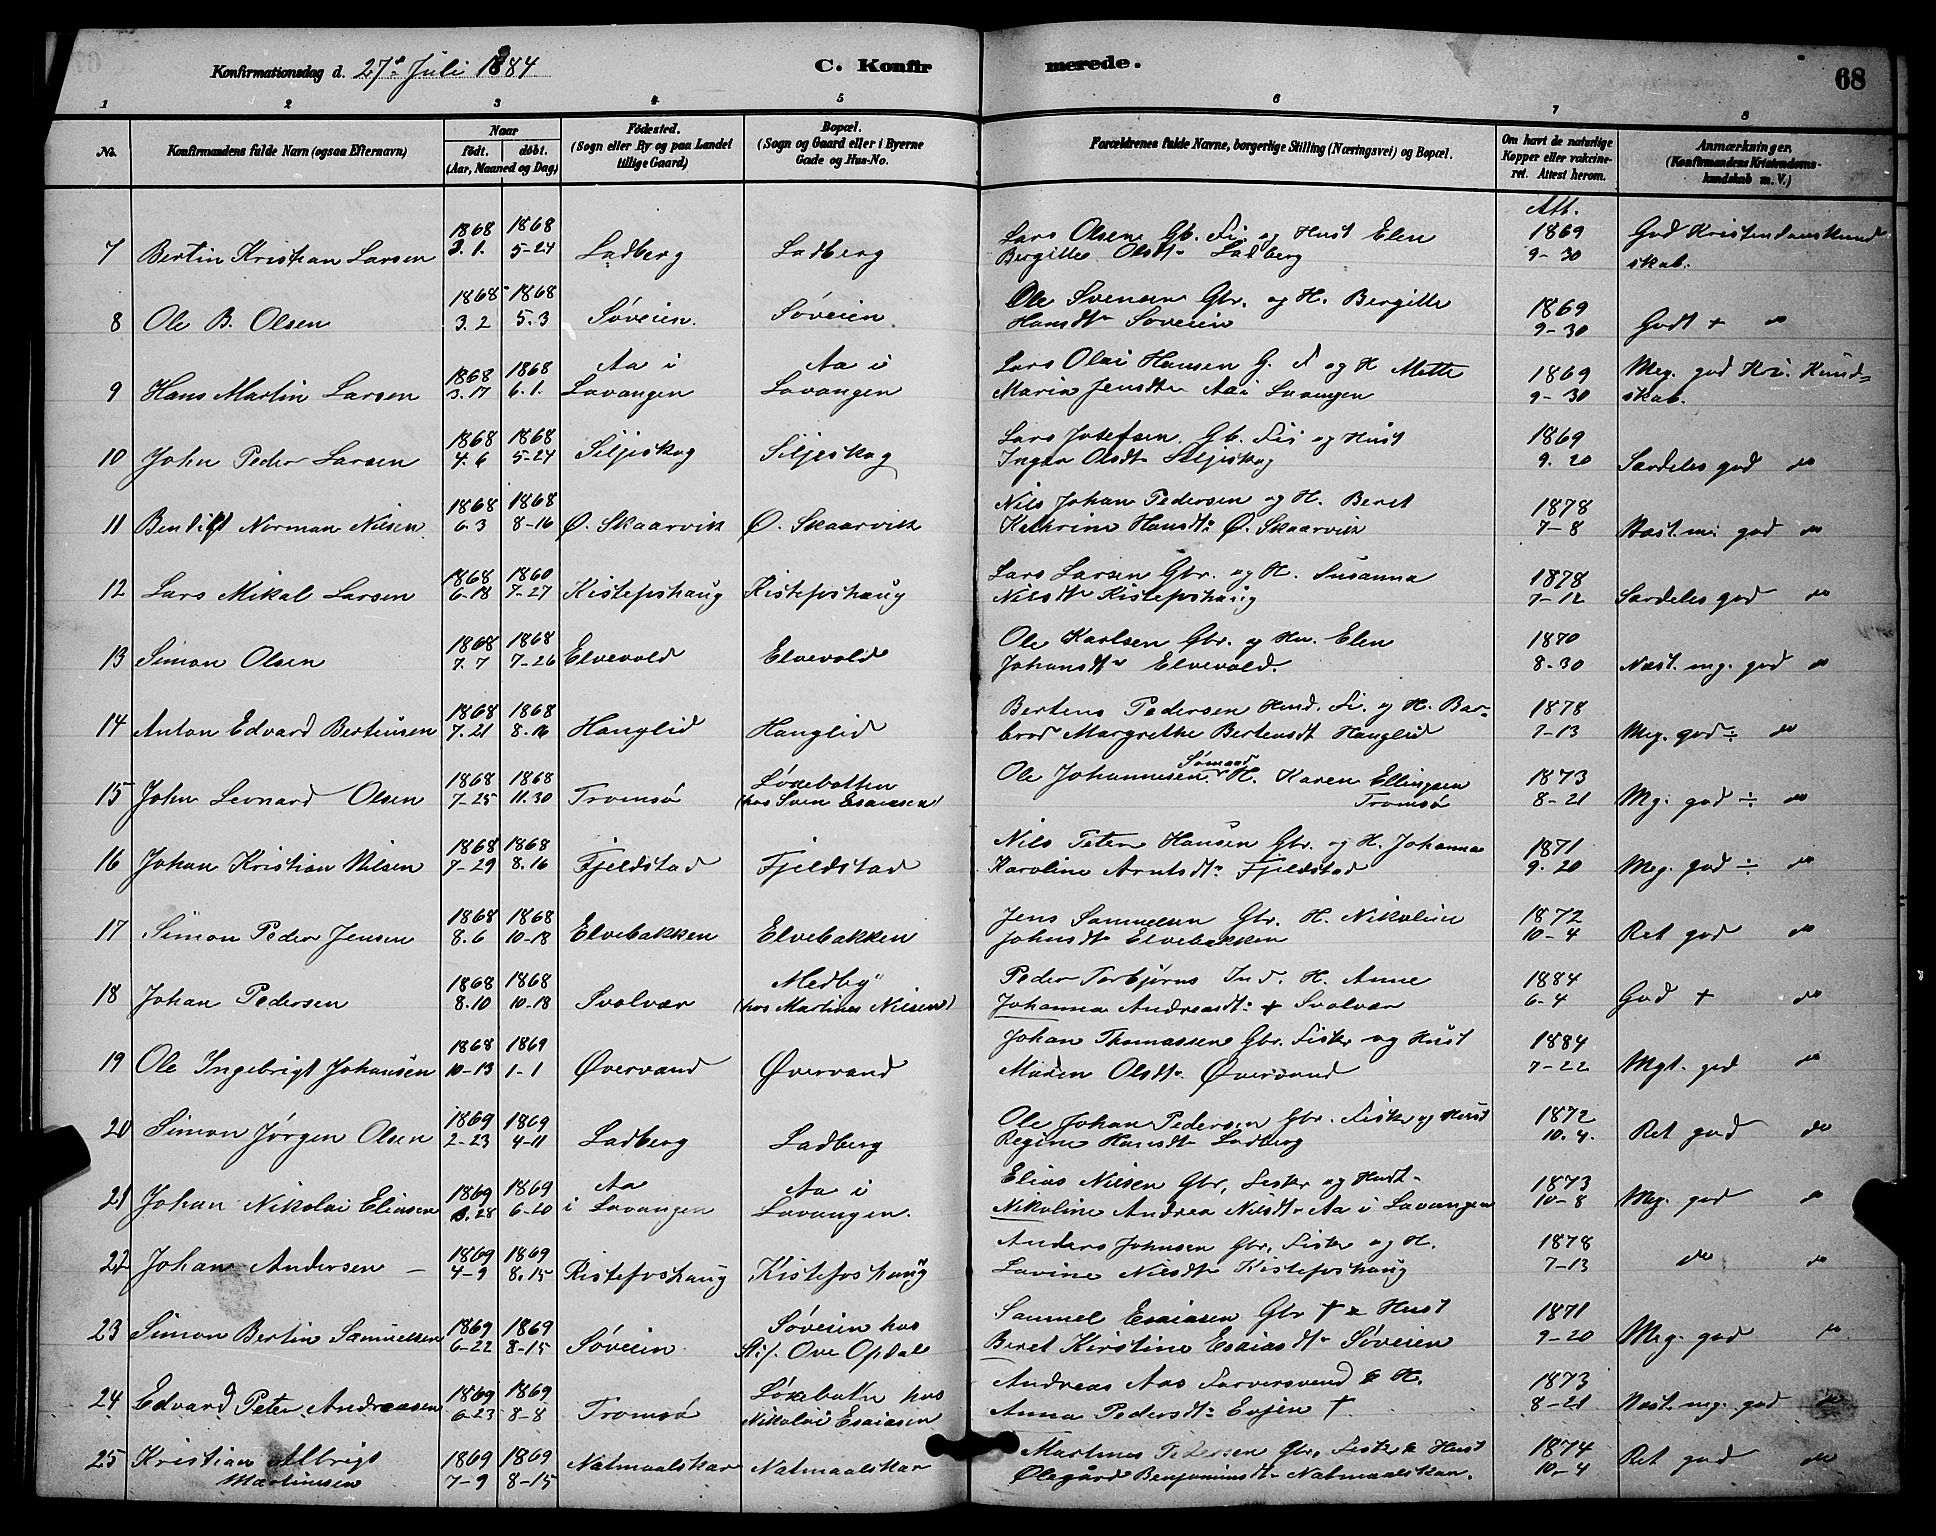 Konfirmationsdag d. 27de Juli 1884 C. Konfirmerede. 68
1 2 3 4 5 6 7 8
No. Konfirmandens fulde Navn (ogsaa Efternavn) Naar født. døbt. (Aar, Maaned og Dag) Fødested. (Sogn eller By og paa Landet tillige Gaard) Bopæl. (Sogn og Gaard eller i Byerne Gade og Hus-No. Forældrenes fulde Navne, borgerlige Stilling (Næringsvei) og Bopæl. Om havt de naturlige Kopper eller vakcineret. Attest herom. Anmærkninger. (Konfirmandens Kristendomskundskab m. V.)
Att.
7 Bertin Kristian Larsen 1868 3.1. 1868 5-24 Ladberg Ladberg Lars Olsen Gb. Fi og Hust Elen Bergitte Olsdtr Ladberg 1869 9-30 God Kristendomskundskab.
8 Ole B. Olsen 1868 3.2 1868 5.3 Søveien. Søveien Ole Svensen Gbr. og H. Bergitte Hansdtr Søveien 1869 9-30 Godt + do
9 Hans Martin Larsen 1868 3.17 1868 6.1. Aa i Lavangen Aa i Lavangen Lars Olai Hansen G. F og H Mette Maria Jensdtr Aa i Lavangen 1869 9-30 Meg. god Kri. Kundskab.
10 John Peder Larsen 1868 4.6 1868 5-24 Siljeskog Siljeskog Lars Josefsen Gb. Fis og Hust Inger Olsdtr Siljeskog 1869 9.20 Særdeles god do
11 Bendikt Norman Nilsen 1868 6.3 1868 8-16 Ø. Skaarvik Ø. Skaarvik Nils Johan Pedersen og H. Beret Kathrine Hansdtr Ø. Skaarvik 1878 7-8 Næst. m. god do
12 Lars Mikal Larsen 1868 6-18 1860 7-27 Kistefoshaug Kistefoshaug Lars Larsen Gbr. og H. Susanna Nilsdtr Kistefoshaug 1878 7-12 Særdeles god do
13 Simon Olsen 1868 7.7 1868 7-26 Elvevold Elvevold Ole Karlsen Gbr. og Hu. Elen Johansdtr Elvevold. 1870 8-30 Næst. mg. god do
14 Anton Edvard Bertensen 1868 7.21 1868 8.16 Hanglid Hanglid Bertens Pedersen Husm. Fi. og H. Barbrod Margrethe Bertensdt Hanglid 1878 7-13 Meg. god ÷ do
15 John Leonard Olsen 1868 7-25 1868 11.30 Tromsø Løxebotten (hos Sven Esaiassen) Ole Johannesen Sømand H. Karen Ellingsen Tromsø 1873 8-21 Mg. god ÷ do
16 Johan Kristian Nilsen 1868 7-29 1868 8.16 Fjeldstad Fjeldstad Nils Peter Hansen Gbr. og H. Johanna Karoline Arntsdtr Fjeldstad 1871 9.20 Meg. god ÷ do
17 Simon Peder Jensen 1868 8.6 1868 10-18 Elvebakken Elvebakken Jens Samuelsen Gbr. H. Nikoline Johnsdtr Elvebakken 1872 10-4 Ret god do
18 Johan Pedersen 1868 8.10 1868 10.18 Svolvær Medby (hos Martines Nilsen) Peder Torbjørns Ind. H. Anne Johanna Andreasdtr + Svolvær 1884 6-4 God + do
19 Ole Ingebrigt Johansen 1868 10-13 1869 1-1 Øvervand Øvervand Johan Thomassen Gbr. Fisker og Hust Maren Olsdtr Øvervand 1884 7-22 Mgt. god do
20 Simon Jørgen Olsen 1869 2-23 1869 4-11 Ladberg Ladberg Ole Johan Pedersen Gbr. Fisker og Hust Regine Hansdtr Ladberg 1872 10.4. Ret god do
21 Johan Nikolai Eliasen 1869 3.28 1869 6-20 Aa i Lavangen Aa i Lavangen. Elias Nilsen Gbr, Fisker og Hust. Nikoline Andrea Nilsdtr Aa i Lavangen 1873 10-8 Meg. god do
22 Johan Andersen 1869 4-9 1869 8.15 Kistefoshaug Kistefoshaug Anders Johnsen Gbr, Fisker og H. Lavine Nilsdtr Kistefoshaug 1878 7-13 do do
23 Simon Bertin Samuelsen 1869 6-22 1869 8-15 Søveien Søveien hos Stif. Ove Opdal Samuel Esaiasen Gbr + & Hust Beret Kirstine Esaiasdtr Søveien 1871 9-20 Meg. god do
24 Edvard Peter Andreasen 1869 6-23 1869 8-8 Tromsø Løxebotn hos Nikolai Esaiasen Andreas Aas Farversvend & H. Anna Pedersdtr Evjen + 1873 8-21 Næst. mg. god do
25 Kristian Albrigt Martinusen 1869 7-9 1869 8-15 Natmaalskar Natmaalskar Martinus Petersen Gbr, Fisker & Hust Olegård Benjaminsdtr Natmaalskar. 1874 10-4 Ret god do